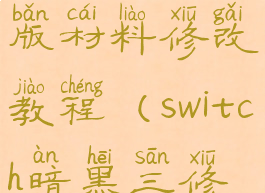 bǎn cái liào xiū gǎi
版材料修改
jiào chéng
教程（switc
àn hēi sān xiū
h暗黑三修